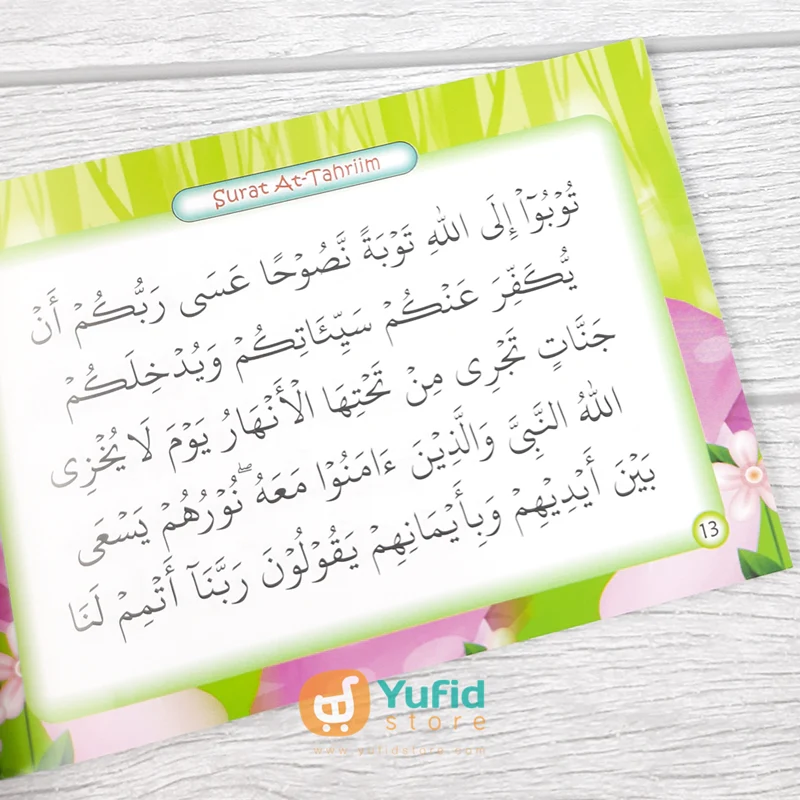 Surat At-Tahriim
تُوْبُوْٓاْ إِلَى اللهِ تَوْبَةً نَّصُوْحًا عَسَى رَبُّكُمْ أَنْ
يُّكَفِّرَ عَنْكُمْ سَيِّئَاتِكُمْ وَيُدْخِلَكُمْ
جَنَّاتٍ تَجْرِى مِنْ تَحْتِهَا الْأَنْهَارُ يَوْمَ لَا يُخْزِى
اللهُ النَّبِىَّ وَالَّذِيْنَ ءَامَنُوْا مَعَهُ ۖ نُوْرُهُمْ يَسْعَى
بَيْنَ أَيْدِيْهِمْ وَبِأَيْمَانِهِمْ يَقُوْلُوْنَ رَبَّنَآ أَتْمِمْ لَنَا
13
Yufid
store
www.yufidstore.com